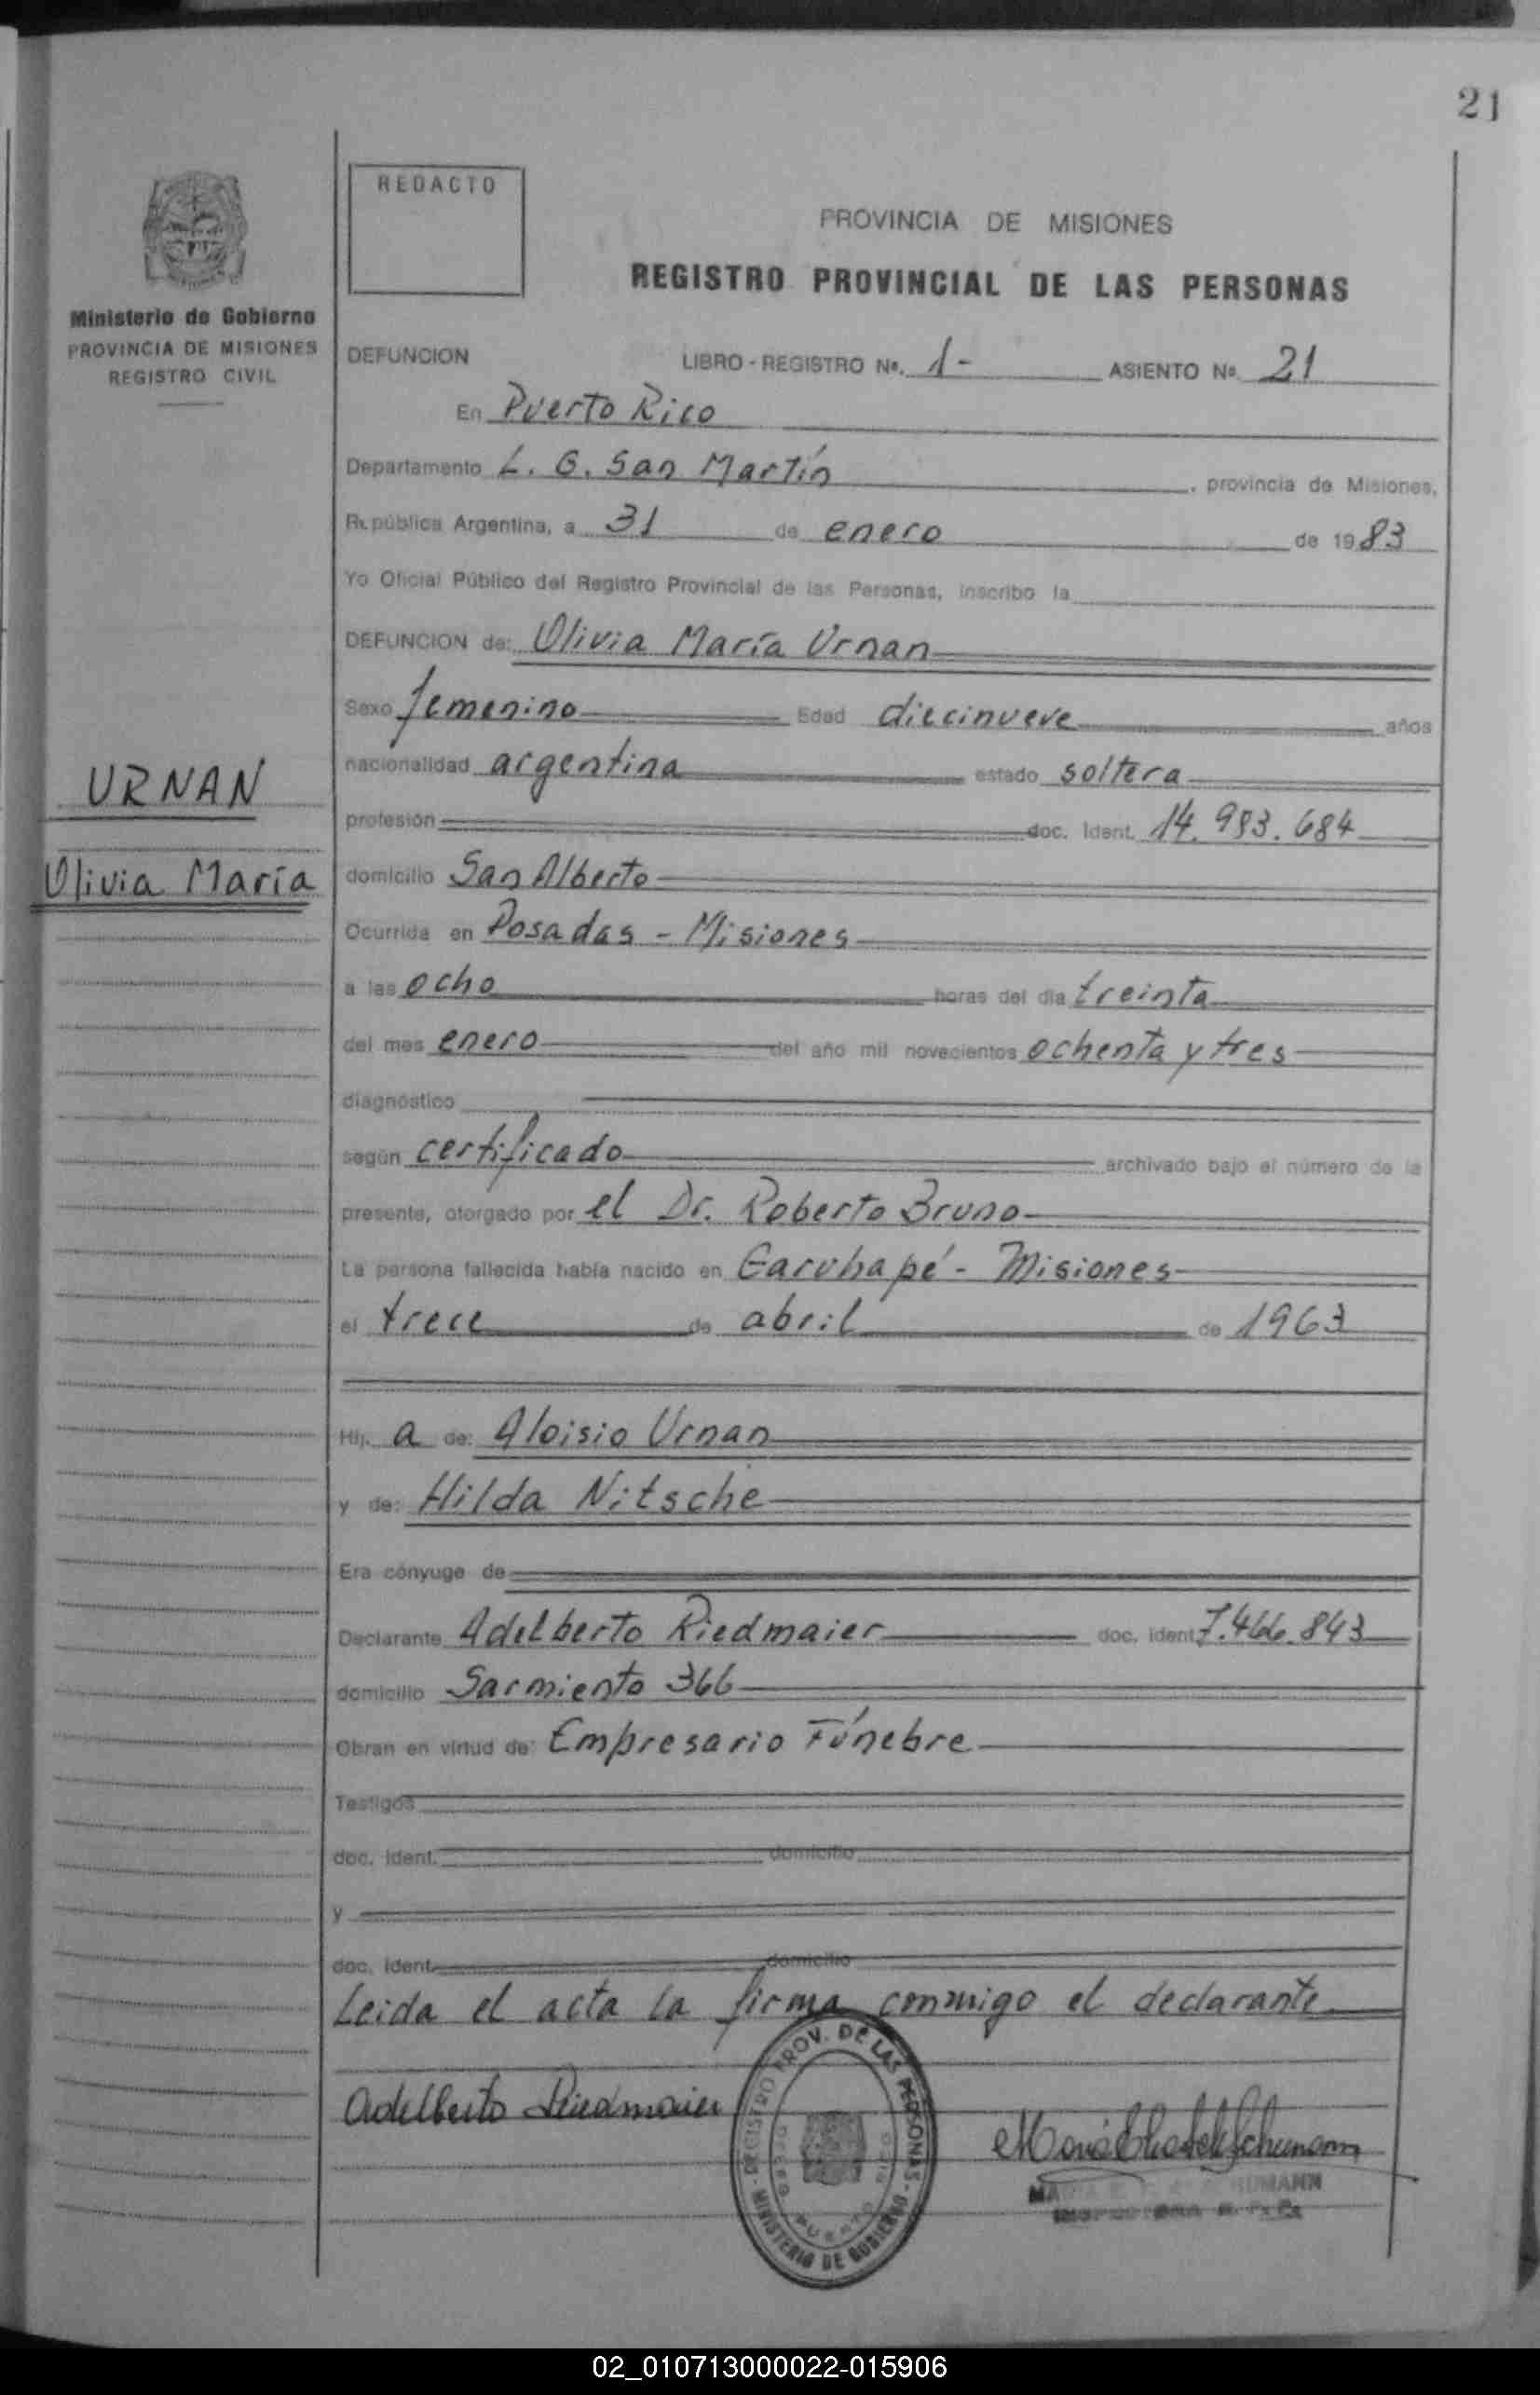 21
REDACTO
PROVINCIA DE MISIONES
REGISTRO PROVINCIAL DE LAS PERSONAS
Ministerio de Gobierno
PROVINCIA DE MISIONES
REGISTRO CIVIL
DEFUNCION LIBRO - REGISTRO Nº. 1- ASIENTO Nº 21
En Puerto Rico
Departamento L. G. San Martín, provincia de Misiones,
República Argentina, a 31 de enero de 1983
Yo Oficial Público del Registro Provincial de las Personas, inscribo la
DEFUNCION de: Olivia María Urnan
Sexo femenino Edad diecinueve años
URNAN
nacionalidad argentina estado soltera
profesión doc. Ident. 14.983.684
Olivia María
domicilio San Alberto
Ocurrida en Posadas - Misiones
a las ocho horas del día treinta
del mes enero del año mil novecientos ochenta y tres
diagnóstico
según certificado archivado bajo el número de la
presente, otorgado por el Dr. Roberto Bruno
La persona fallecida había nacido en Garuhapé - Misiones
el trece de abril de 1963
Hij. a de: Aloisio Urnan
y de: Hilda Nitsche
Era cónyuge de
Declarante Adelberto Riedmaier doc. ident. 7.466.843
domicilio Sarmiento 366
Obran en virtud de: Empresario Fúnebre
Testigos
doc. ident. domicilio
y
doc. ident. domicilio
Leida el acta la firma conmigo el declarante
Adelberto Riedmaier
REGISTRO PROV. DE LAS PERSONAS - MINISTERIO DE GOBIERNO -
PUERTO
02_010713000022-015906